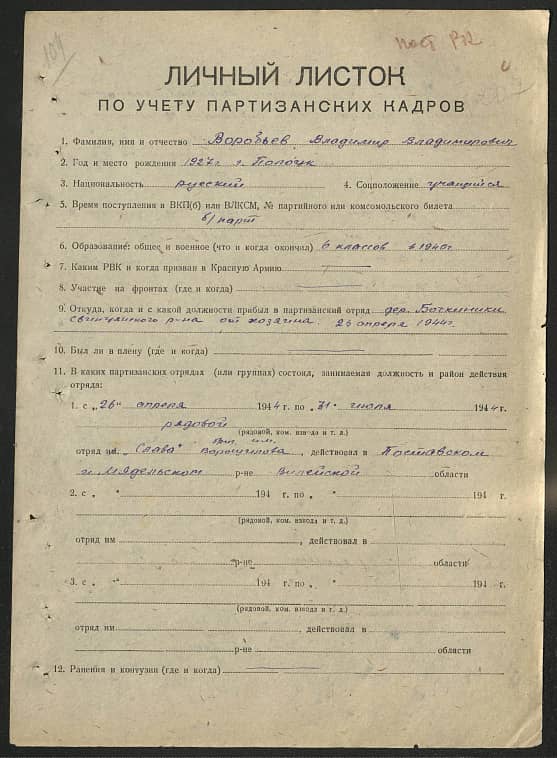 109
ЛИЧНЫЙ ЛИСТОК
ПО УЧЕТУ ПАРТИЗАНСКИХ КАДРОВ
1. Фамилия, имя и отчество Воробьев Владимир Владимирович
2. Год и место рождения 1927 г. г. Полоцк
3. Национальность русский 4. Соцположение учащийся
5. Время поступления в ВКП(б) или ВЛКСМ, № партийного или комсомольского билета
б/парт
6. Образование: общее и военное (что и когда окончил) 6 классов в 1940г.
7. Каким РВК и когда призван в Красную Армию
8. Участие на фронтах (где и когда)
9. Откуда, когда и с какой должности прибыл в партизанский отряд дер.
р-на от хозяина 26 апреля 1944г.
10. Был ли в плену (где и когда)
11. В каких партизанских отрядах (или группах) состоял, занимаемая должность и район действия
отряда:
1. с „26" апреля 1944 г. по „31" июля 1944 г.
рядовой
(рядовой, ком. взвода и т. д.)
отряд им. „Слава" им. Ворошилова, действовал в Поставском
и Мядельском р-не Вилейской области
2. с „ " 194 г. по „ " 194 г.
(рядовой, ком. взвода и т. д.)
отряд им , действовал в
р-не области
3. с „ " 194 г. по „ " 194 г.
(рядовой, ком. взвода и т. д.)
отряд им , действовал в
р-не области
12. Ранения и контузии (где и когда)